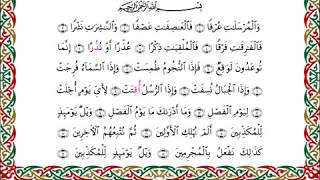 بِسْمِ ٱللَّهِ ٱلرَّحْمَٰنِ ٱلرَّحِيمِ
وَٱلْمُرْسَلَٰتِ عُرْفًا ۝ فَٱلْعَٰصِفَٰتِ عَصْفًا ۝ وَٱلنَّٰشِرَٰتِ نَشْرًا ۝
فَٱلْفَٰرِقَٰتِ فَرْقًا ۝ فَٱلْمُلْقِيَٰتِ ذِكْرًا ۝ عُذْرًا أَوْ نُذْرًا ۝ إِنَّمَا
تُوعَدُونَ لَوَٰقِعٌ ۝ فَإِذَا ٱلنُّجُومُ طُمِسَتْ ۝ وَإِذَا ٱلسَّمَآءُ فُرِجَتْ ۝
وَإِذَا ٱلْجِبَالُ نُسِفَتْ ۝ وَإِذَا ٱلرُّسُلُ أُقِّتَتْ ۝ لِأَىِّ يَوْمٍ أُجِّلَتْ ۝
لِيَوْمِ ٱلْفَصْلِ ۝ وَمَآ أَدْرَىٰكَ مَا يَوْمُ ٱلْفَصْلِ ۝ وَيْلٌ يَوْمَئِذٍ
لِّلْمُكَذِّبِينَ ۝ أَلَمْ نُهْلِكِ ٱلْأَوَّلِينَ ۝ ثُمَّ نُتْبِعُهُمُ ٱلْءَاخِرِينَ ۝
كَذَٰلِكَ نَفْعَلُ بِٱلْمُجْرِمِينَ ۝ وَيْلٌ يَوْمَئِذٍ لِّلْمُكَذِّبِينَ ۝